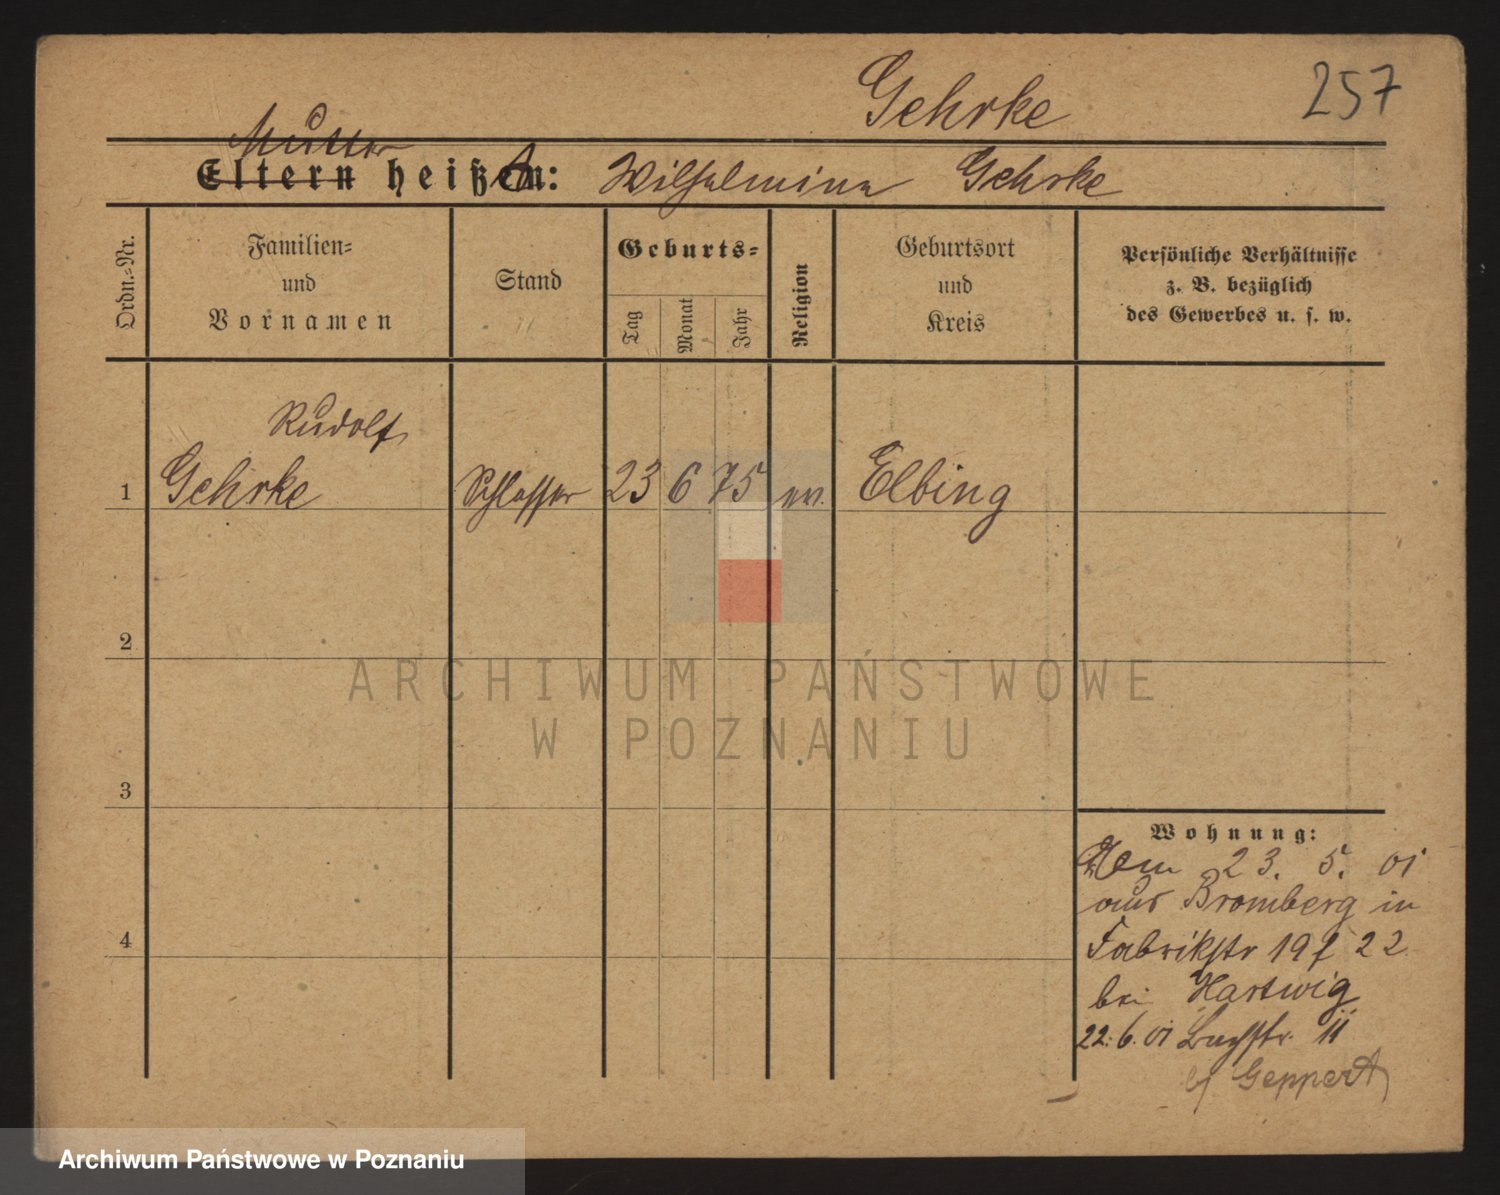 Gehrke 257
Mutter
Eltern heißen: t Wilhelmine Gehrke
Ordn.-Nr.
Familien-
und
Vornamen
Stand
Geburts-
Tag
Monat
Jahr
Religion
Geburtsort
und
Kreis
Persönliche Verhältnisse
z. B. bezüglich
des Gewerbes u. s. w.
Rudolf
1 Gehrke Schlosser 23 6 75 ev. Elbing
2
3
4
Wohnung:
23. 5. 01
aus Bromberg in
Fabrikstr 19 22
bei Hartwig
22. 6. 01 11
Geppert
ARCHIWUM PAŃSTWOWE
W POZNANIU
Archiwum Państwowe w Poznaniu